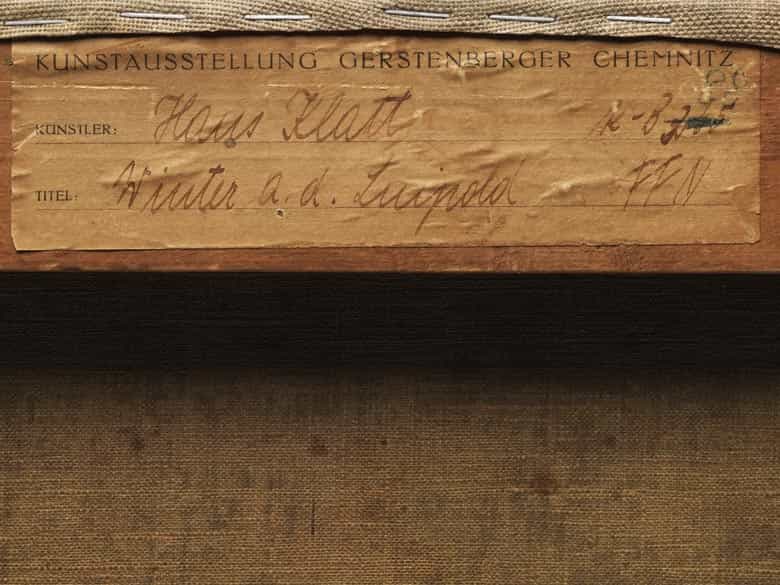 KUNSTAUSSTELLUNG GERSTENBERGER CHEMNITZ
KÜNSTLER: Hans Klatt
TITEL: Winter a. d. Luipold FFN